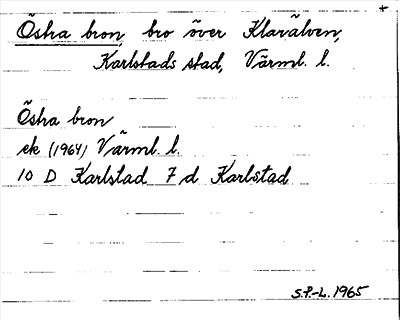 Östra bron, bro över Klarälven,
Karlstads stad, Värml. l.
Östra bron
ek (1964) Värml. l.
10 D Karlstad 7 d Karlstad
S.P.-L. 1965